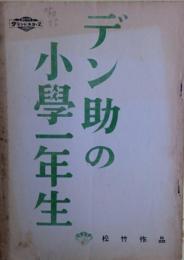 デン助の
小學一年生
松竹作品